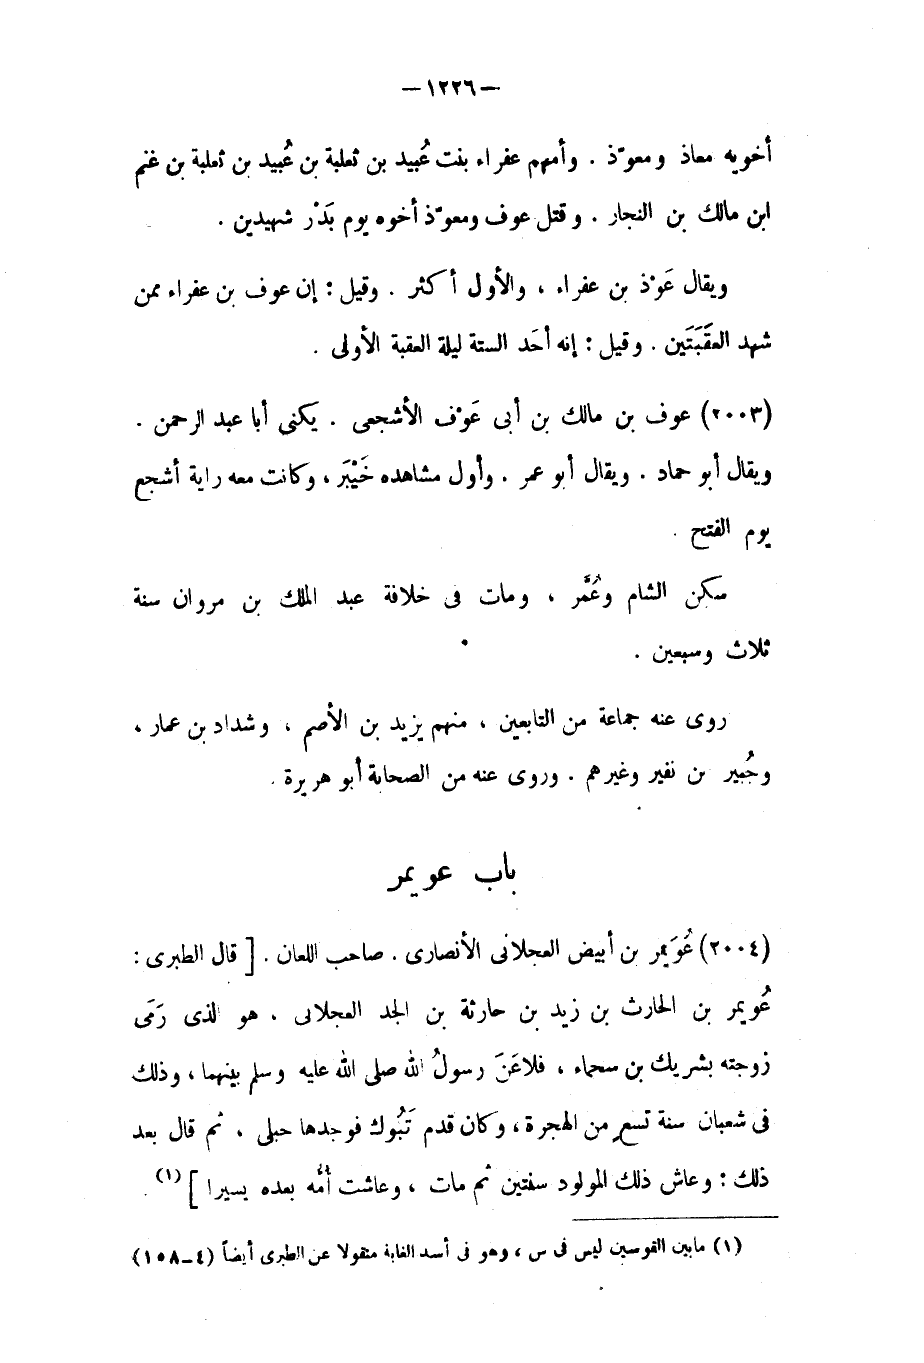 — ١٢٢٦ —
أخويه معاذ ومعوّذ . وأمهم عفراء بنت عُبيد بن ثعلبة بن عُبيد بن ثعلبة بن غنم
ابن مالك بن النجار . وقتل عوف ومعوّذ أخوه يوم بَدْر شهيدين .
ويقال عَوْذ بن عفراء ، والأول أكثر . وقيل : إن عوف بن عفراء ممن
شهد العقَبَتَين . وقيل : إنه أحَد الستة ليلة العقبة الأولى .
(٢٠٠٣) عوف بن مالك بن أبى عَوْف الأشجعى . يكنى أبا عبد الرحمن .
ويقال أبو حماد . ويقال أبو عمر . وأول مشاهده خَيْبَر ، وكانت معه راية أشجع
يوم الفتح .
سكن الشام وعُمَّر ، ومات فى خلافة عبد الملك بن مروان سنة
ثلاث وسبعين .
روى عنه جماعة من التابعين ، منهم يزيد بن الأصم ، وشداد بن عمار ،
وجُبير بن نفير وغيرهم . وروى عنه من الصحابة أبو هريرة .
باب عويمر
(٢٠٠٤) عُوَيمر بن أبيض العجلانى الأنصارى . صاحب اللعان . [ قال الطبرى :
عُويمر بن الحارث بن زيد بن حارثة بن الجد العجلانى . هو الذى رَمَى
زوجته بشريك بن سحماء ، فلاعَنَ رسولُ الله صلى الله عليه وسلم بينهما ، وذلك
فى شعبان سنة تسع من الهجرة ، وكان قدم تَبُوك فوجدها حبلى . ثم قال بعد
ذلك : وعاش ذلك المولود سنتين ثم مات ، وعاشت أمُّه بعده يسيرا ] (١) .
(١) مابين القوسين ليس فى س ، وهو فى أسد الغابة منقولا عن الطبرى أيضاً (٤ــ١٥٨)